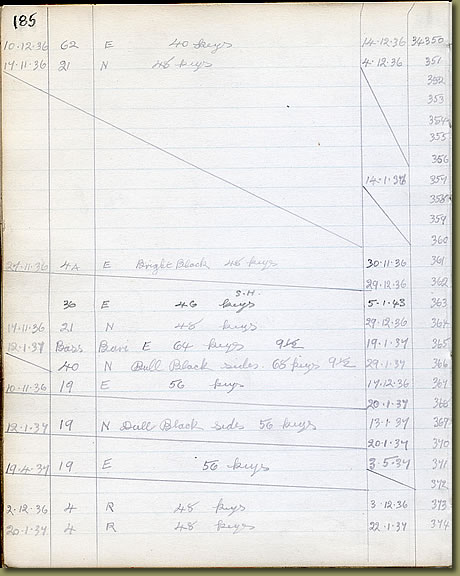 185
10.12.36 62 E 40 keys 14.12.36 34350
17.11.36 21 N 48 keys 4.12.36 351
352
353
354
355
356
14.1.37 357
358
359
360
27.11.36 4A E Bright Black 48 keys 30.11.36 361
29.12.36 362
S.H.
36 E 46 keys 5.1.43 363
17.11.36 21 N 48 keys 29.12.36 364
12.1.37 Bass E 64 keys 9½ 19.1.37 365
40 N Dull Black sides. 65 keys 9½ 29.1.37 366
10.11.36 19 E 56 keys 17.12.36 367
20.1.37 368
12.1.37 19 N Dull Black sides 56 keys 13.1.37 369
20.1.37 370
19.4.37 19 E 56 keys 3.5.37 371
372
2.12.36 4 R 48 keys 3.12.36 373
20.1.37 4 R 48 keys 22.1.37 374